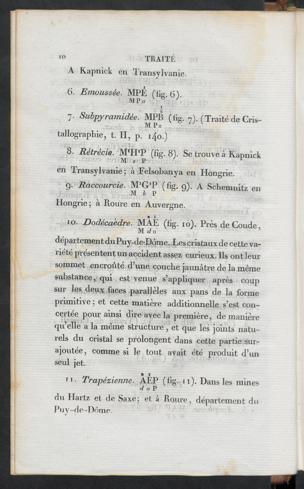 10 TRAITÉ
A Kapnick en Transylvanie.
6. Emoussée. MPÉ (fig. 6).
M P o
7. Subpyramidée. MPB (fig. 7). (Traité de Cris-
M P o
tallographie, t. II, p. 140.)
8. Rétrécie. M¹H¹P (fig. 8). Se trouve à Kapnick
M s P
en Transylvanie; à Felsobanya en Hongrie.
9. Raccourcie. M¹G¹P (fig. 9). A Schemnitz en
M k P
Hongrie; à Roure en Auvergne.
10. Dodécaèdre. MAE (fig. 10). Près de Coude,
M d o
département du Puy-de-Dôme. Les cristaux de cette va-
riété présentent un accident assez curieux. Ils ont leur
sommet encroûté d'une couche jaunâtre de la même
substance, qui est venue s'appliquer après coup
sur les deux faces parallèles aux pans de la forme
primitive; et cette matière additionnelle s'est con-
certée pour ainsi dire avec la première, de manière
qu'elle a la même structure, et que les joints natu-
rels du cristal se prolongent dans cette partie sur-
ajoutée, comme si le tout avait été produit d'un
seul jet.
11. Trapézienne. AEP (fig. 11). Dans les mines
d o P
du Hartz et de Saxe; et à Roure, département du
Puy-de-Dôme.